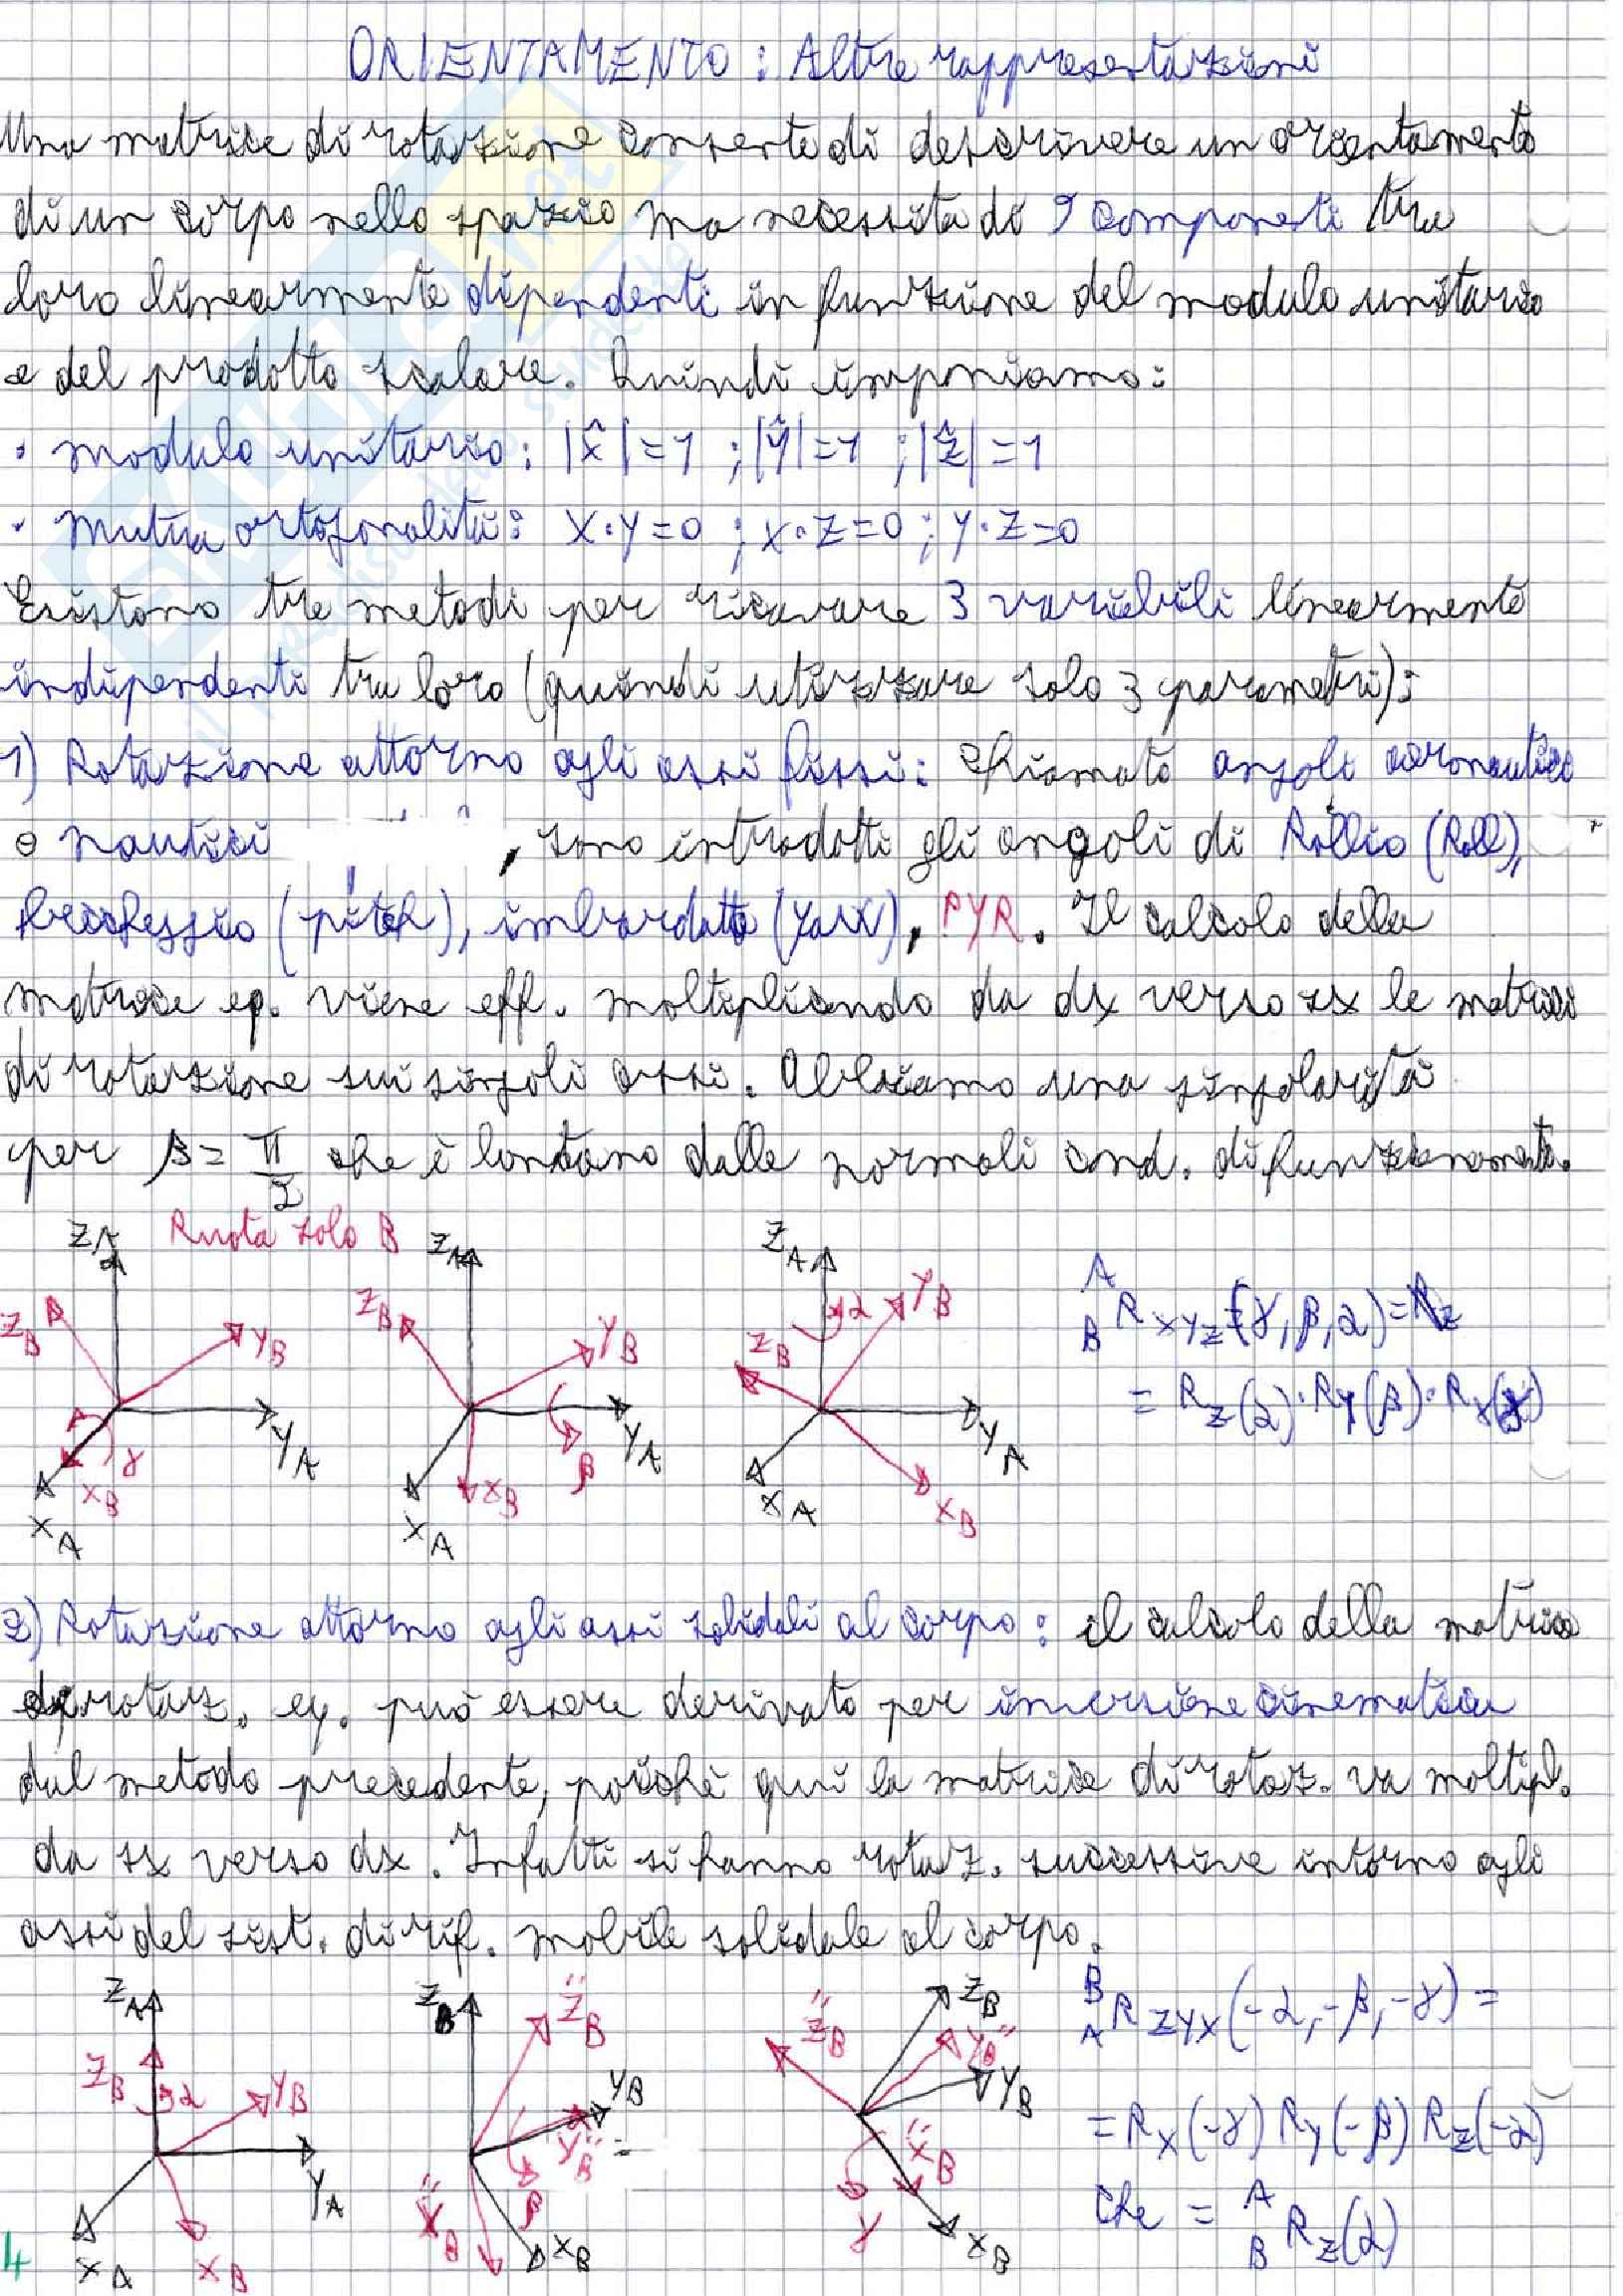 ORIENTAMENTO: Altre rappresentazioni
Una matrice di rotazione consente di descrivere un orientamento
di un corpo nello spazio ma necessita di 9 componenti tra
loro linearmente dipendenti in funzione del modulo unitario
e del prodotto scalare. Quindi imponiamo:
• modulo unitario: |x̂|=1 ; |ŷ|=1 ; |ẑ|=1
• Mutua ortogonalità: X·Y=0 ; X·Z=0 ; Y·Z=0
Esistono tre metodi per ricavare 3 variabili linearmente
indipendenti tra loro (quindi utilizzare solo 3 parametri):
1) Rotazione attorno agli assi fissi: chiamato angoli aeronautici
o nautici , sono introdotti gli angoli di Rollio (Roll),
Beccheggio (pitch), imbardata (Yaw), PYR. Il calcolo della
matrice eq. viene eff. moltiplicando da dx verso sx le matrici
di rotazione sui singoli assi. Abbiamo una singolarità
per β = π/2 che è lontano dalle normali cond. di funzionamento.
Ruota solo B
Z_A Z_B Y_B Y_A γ X_B X_A
Z_A Z_B Y_B Y_A β X_B X_A
Z_A α Y_B Z_B Y_A X_A X_B
A B R XYZ (γ, β, α) = R_Z
= R_Z(α)·R_Y(β)·R_X(γ)
2) Rotazione attorno agli assi solidali al corpo: il calcolo della matrice
rotaz. eq. può essere derivato per inversione cinematica
dal metodo precedente, poiché qui la matrice di rotaz. va moltipl.
da sx verso dx. Infatti si fanno rotaz. successive intorno agli
assi del sist. di rif. mobile solidale al corpo.
Z_A Z_B α Y_B Y_A X_A X_B
Z_B Z̈_B Y_B Ÿ_B β Ẍ_B X_B
Z̈_B Z_B Ÿ_B Y_B Ẍ_B γ X_B
B A R ZYX (-α, -β, -γ) =
= R_X(-γ) R_Y(-β) R_Z(-α)
che = A B R_Z(α)
4
SKUOLA.net
il paradiso dello studente